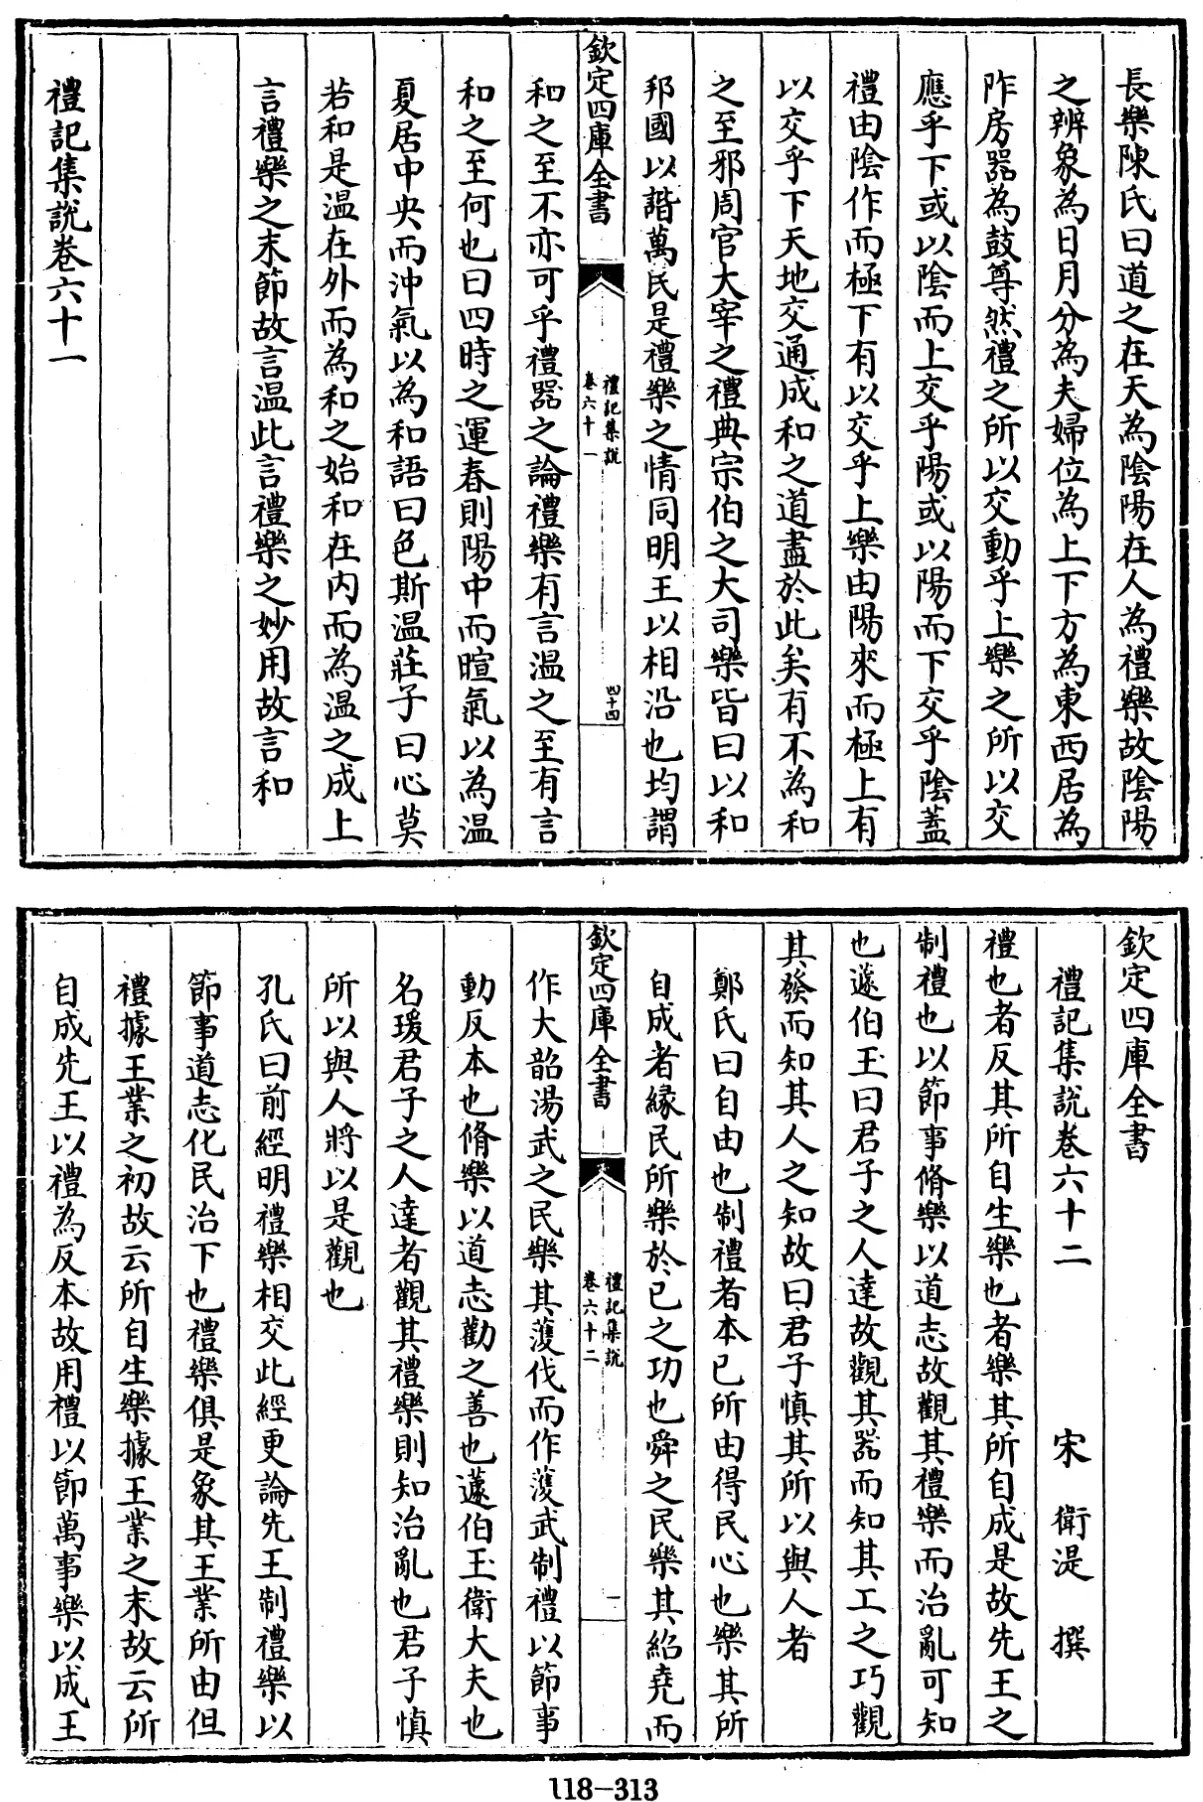 長樂陳氏曰道之在天為陰陽在人為禮樂故陰陽
之辨象為日月分為夫婦位為上下方為東西居為
阼房器為鼓尊然禮之所以交動乎上樂之所以交
應乎下或以陰而上交乎陽或以陽而下交乎陰蓋
禮由陰作而極下有以交乎上樂由陽來而極上有
以交乎下天地交通成和之道盡於此矣有不為和
之至邪周官大宰之禮典宗伯之大司樂皆曰以和
邦國以諧萬民是禮樂之情同明王以相沿也均謂
欽定四庫全書
禮記集說
卷六十一
四十四
和之至不亦可乎禮器之論禮樂有言溫之至有言
和之至何也曰四時之運春則陽中而暄氣以為溫
夏居中央而沖氣以為和語曰色斯温莊子曰心莫
若和是温在外而為和之始和在内而為温之成上
言禮樂之末節故言温此言禮樂之妙用故言和
禮記集說卷六十一
欽定四庫全書
禮記集說卷六十二
宋 衛湜 撰
禮也者反其所自生樂也者樂其所自成是故先王之
制禮也以節事脩樂以道志故觀其禮樂而治亂可知
也蘧伯玉曰君子之人達故觀其器而知其工之巧觀
其發而知其人之知故曰君子慎其所以與人者
鄭氏曰自由也制禮者本已所由得民心也樂其所
自成者縁民所樂於已之功也舜之民樂其紹堯而
欽定四庫全書
禮記集說
卷六十二
一
作大韶湯武之民樂其濩伐而作濩武制禮以節事
動反本也脩樂以道志勸之善也蘧伯玉衛大夫也
名瑗君子之人達者觀其禮樂則知治亂也君子慎
所以與人將以是觀也
孔氏曰前經明禮樂相交此經更論先王制禮樂以
節事道志化民治下也禮樂俱是象其王業所由但
禮據王業之初故云所自生樂據王業之末故云所
自成先王以禮為反本故用禮以節萬事樂以成王
118-313